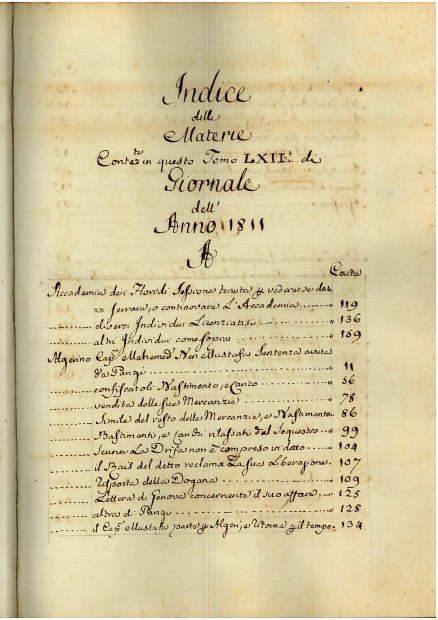 Indice
delle
Materie
Conte.te in questo Tomo LXII.° di
Giornale
dell'
Anno 1811
A
Carta
Accademia dei tenuta p vedere se das-
o continovare L'Accademia 119
diversi Individui Licenziati 136
altri Individui come sopra 159
Algerino Cap.n Mahomed Ben Mustafa Sentenza avuta
da Parigi 11
confiscatoli Bastimento, e Carico 56
vendita delle sue Mercanzie 78
Simile del resto delle Mercanzie, e Bastimento 86
Bastimenti, e rilasciati dal Sequestro 99
La non è compreso in detto 104
il Rais del detto reclama La sua Liberazione 107
Risposta della Dogana 109
Lettera di Genova concernente il suo affare 125
altra di Parigi 128
il Cap.n Mustafa parte p Algeri, e Ritorna p il tempo 134